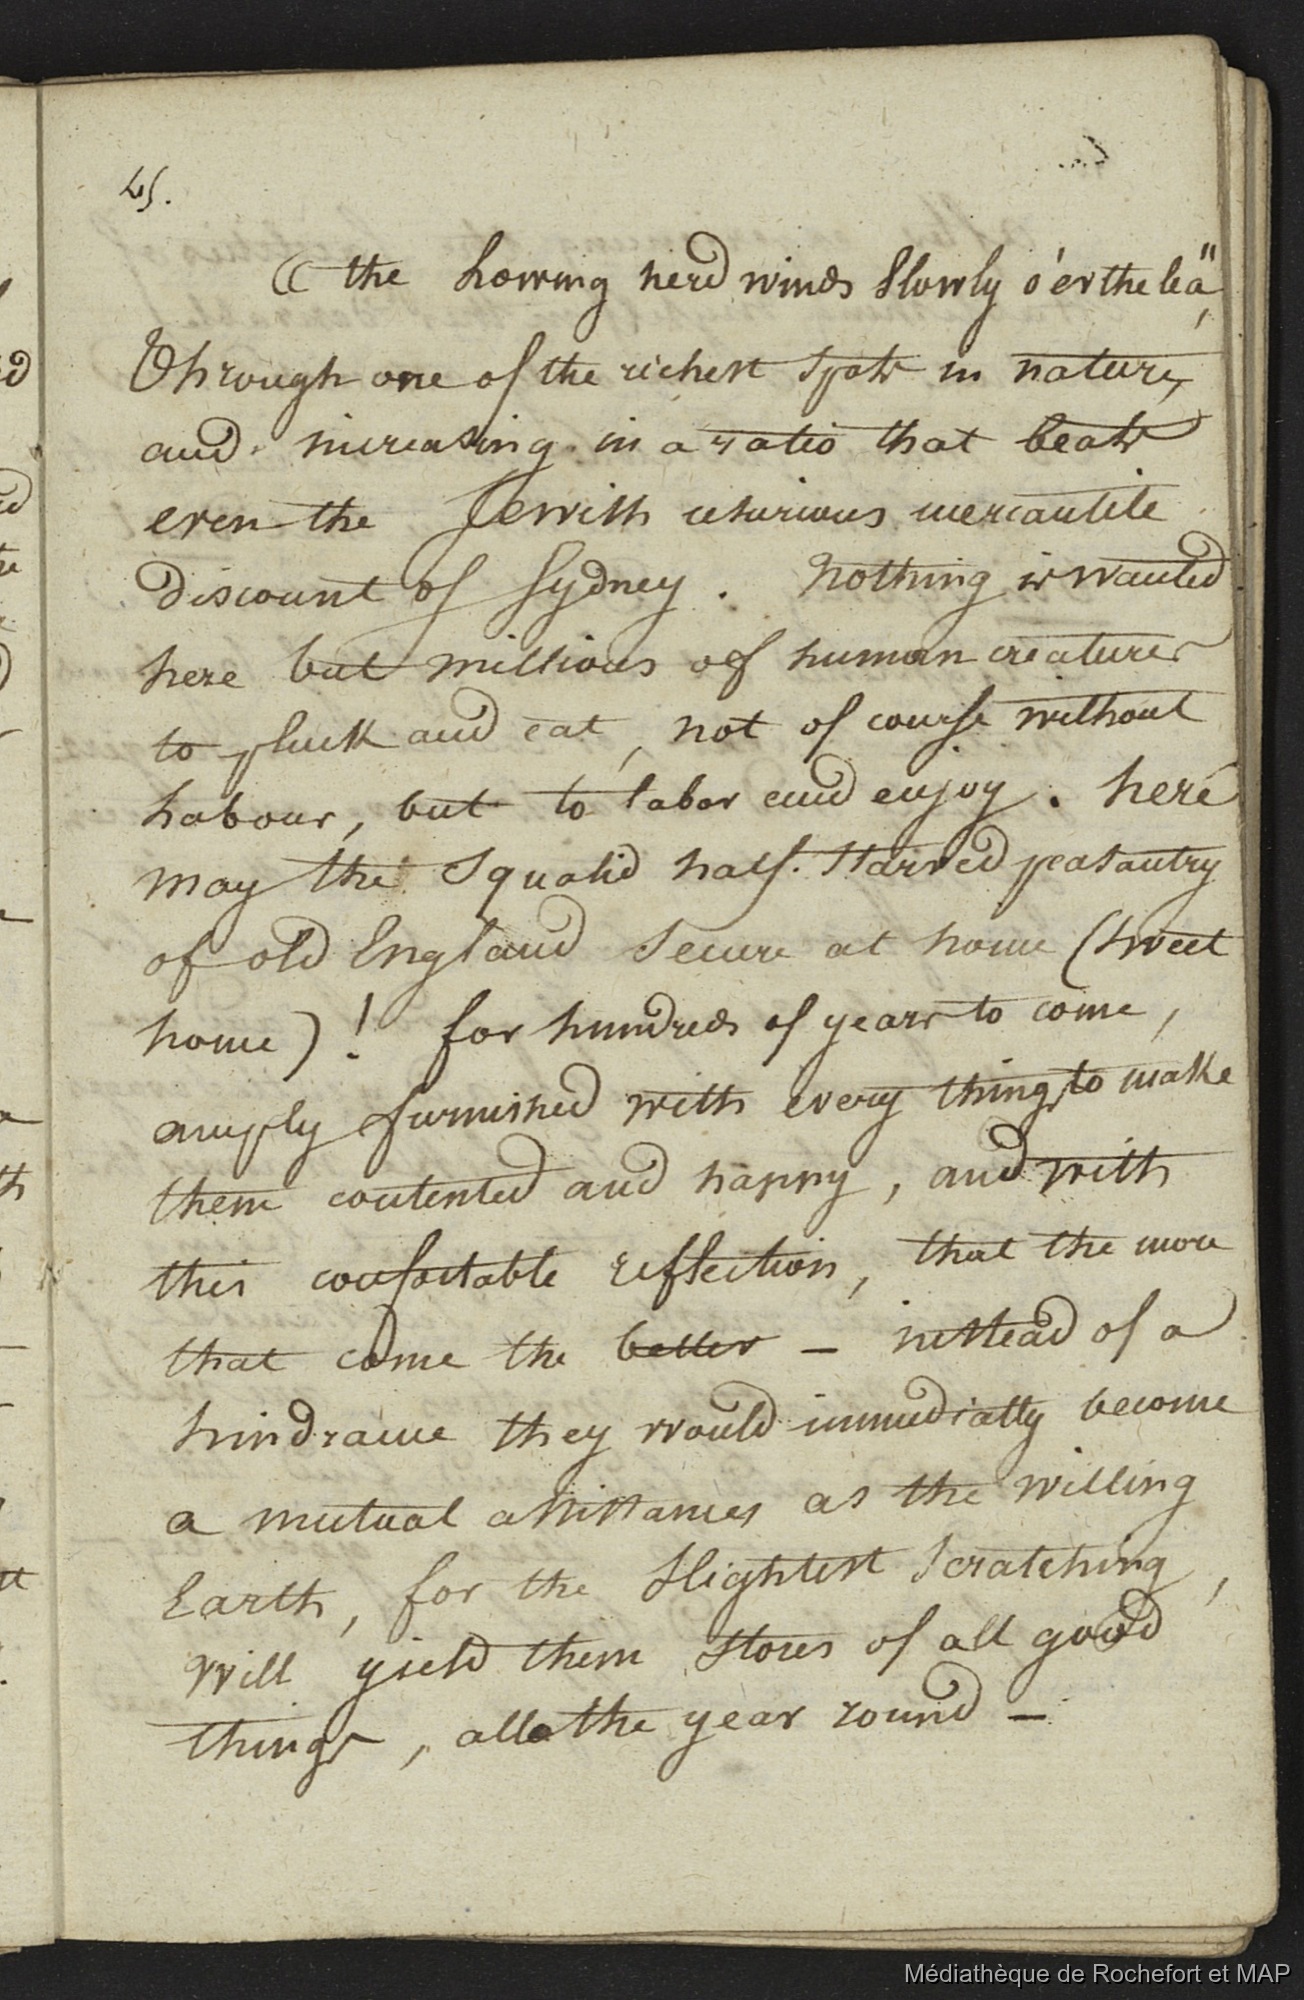 45.
" the Lowing herd winds slowly o'er the lea",
Through one of the richest spots in nature,
and increasing in a ratio that beats
even the Jewish usurious mercantile
discount of Sydney. Nothing is wanted
here but millions of human creatures
to pluck and eat, not of course without
labour, but to labor and enjoy. here
may the squalid half. starved peasantry
of old England secure at home (sweet
home)! for hundreds of years to come,
amply furnished with every thing to make
them contented and happy, and with
this comfortable reflection, that the more
that come the better – instead of a
hindrance they would immediatly become
a mutual assistances as the willing
Earth, for the slightest scratching,
will yield them stores of all good
things, all the year round –
Médiathèque de Rochefort et MAP